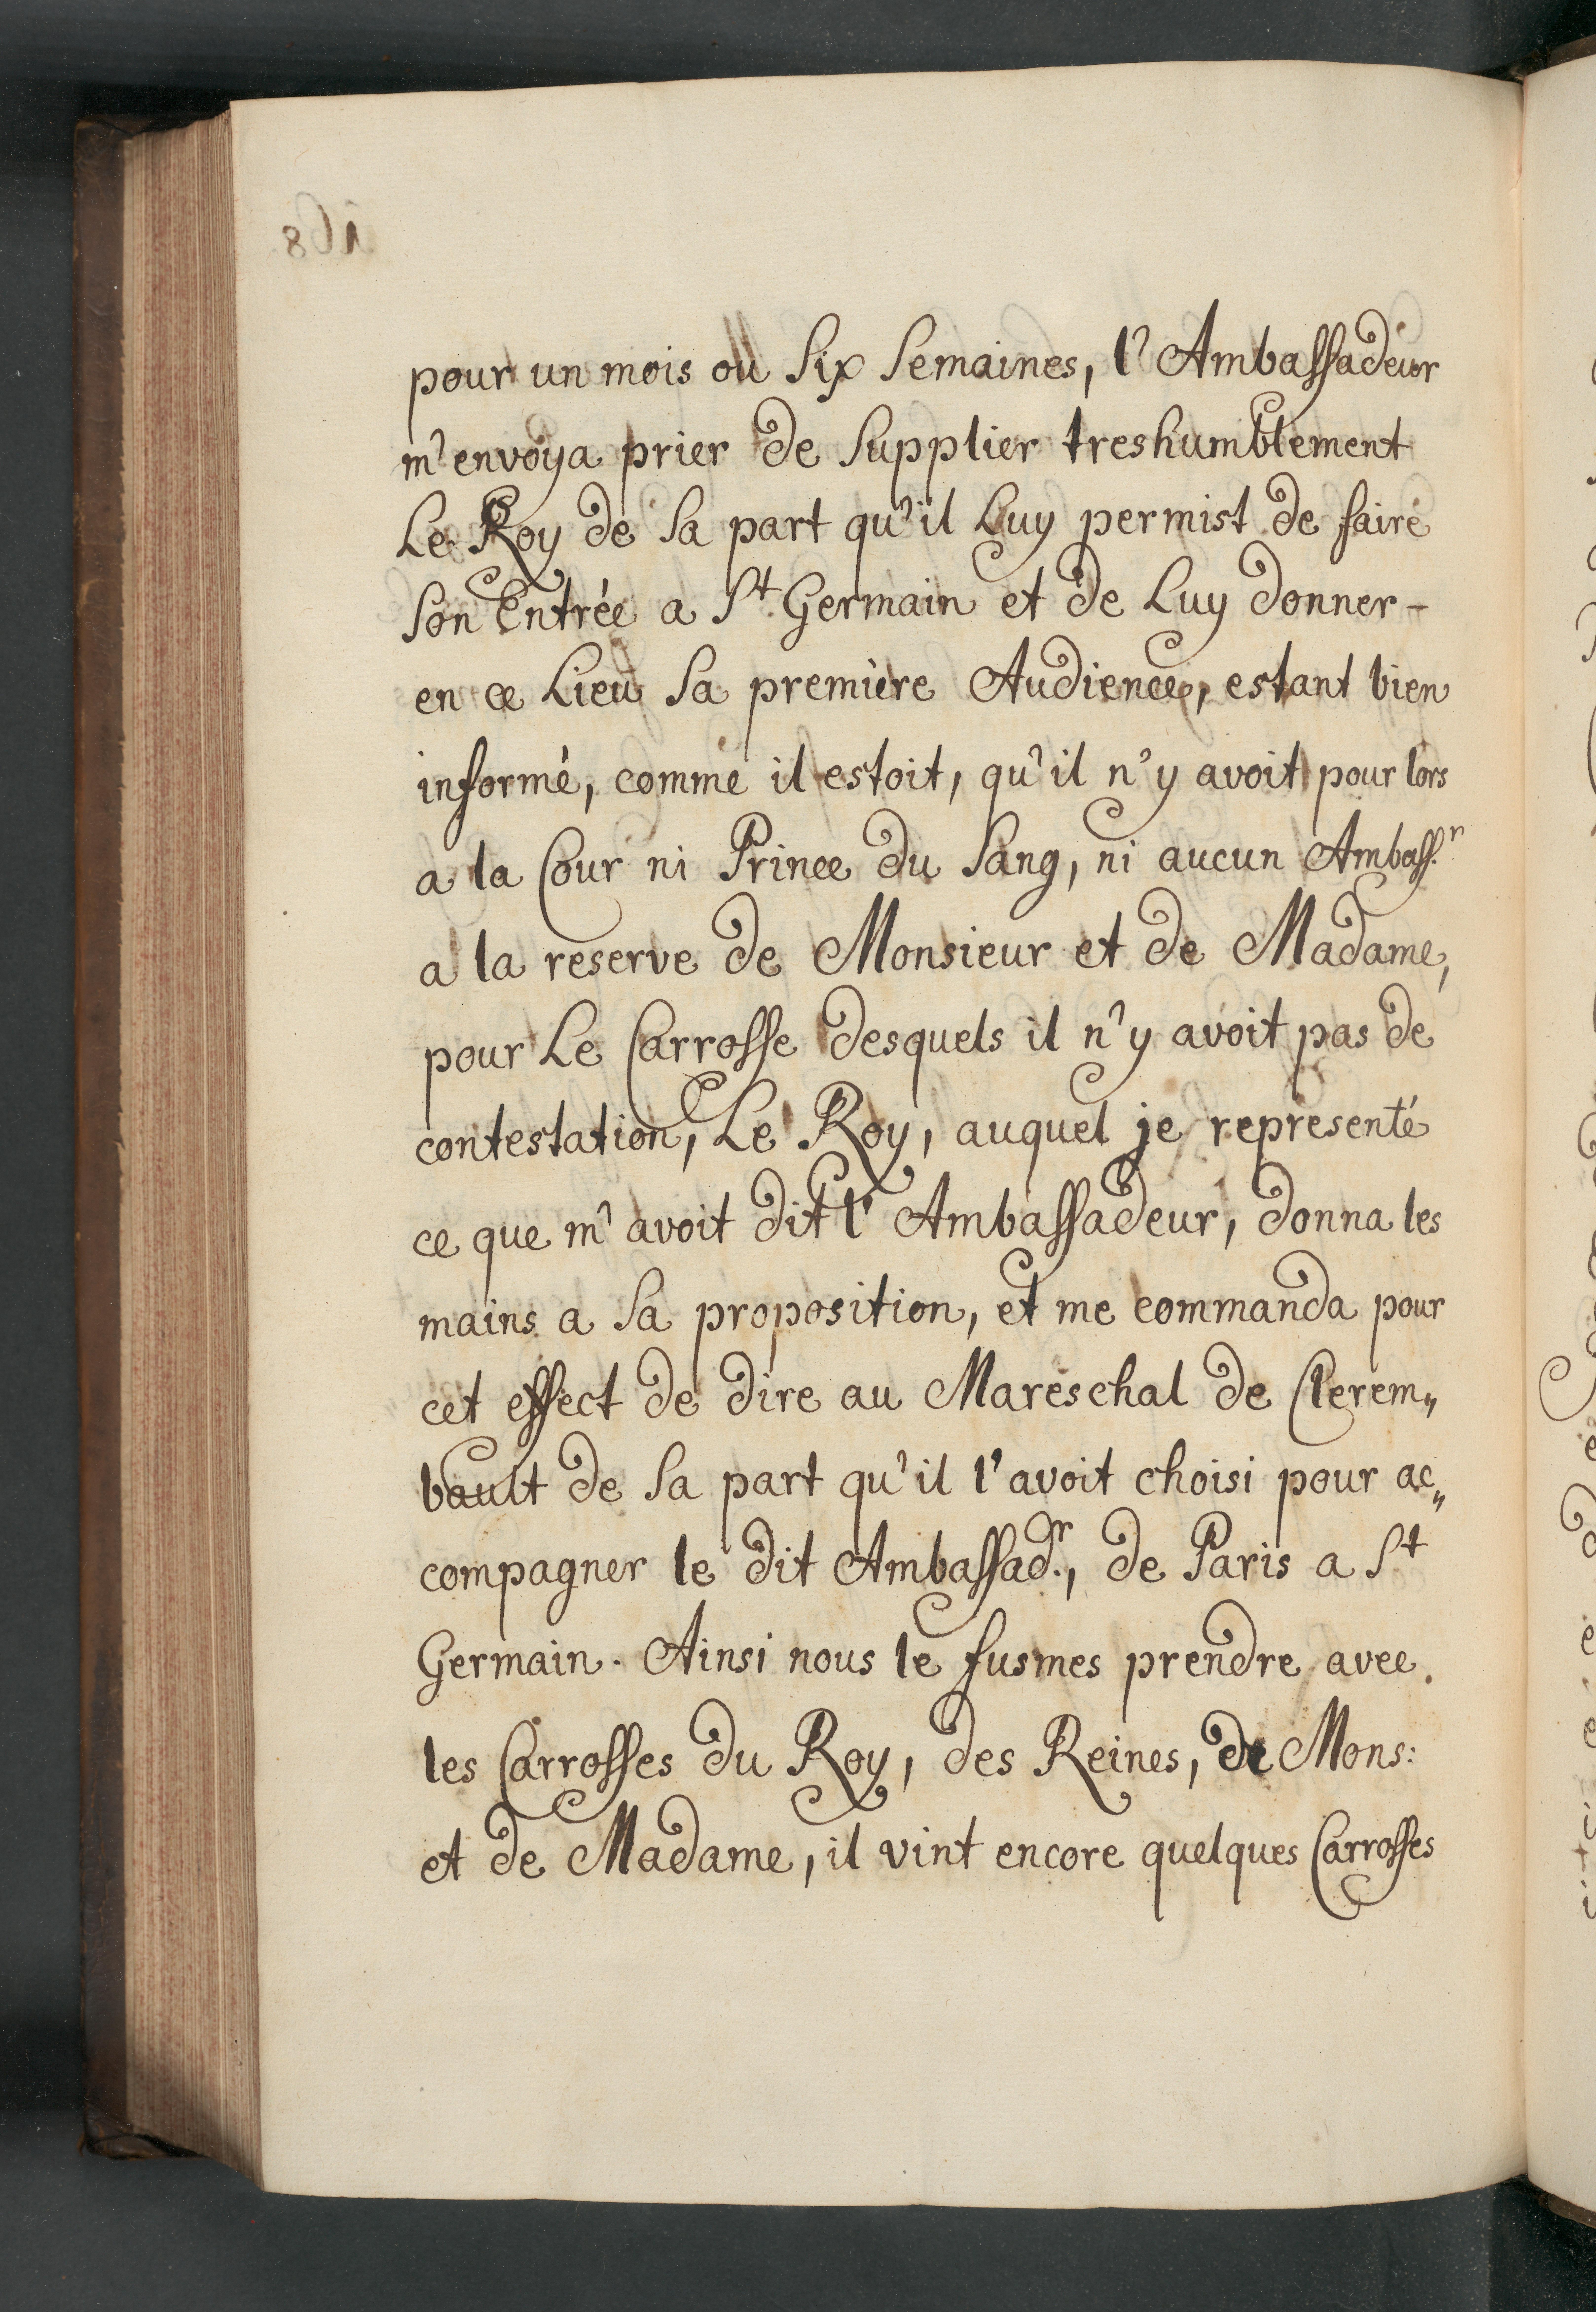 pour un mois ou six semaines, l'Ambassadeur
m'envoya prier de supplier treshumblement
Le Roy de sa part qu'il Luy permist de faire
son Entrée a St. Germain et de Luy donner-
en ce Lieu sa premiere Audience, estant bien
informé, comme il estoit, qu'il n'y avoit pour lors
a la Cour ni Prince du sang, ni aucun Ambass.r
a la reserve de Monsieur et de Madame,
pour Le Carrosse desquels il n'y avoit pas de
contestation, Le Roy, auquel je representé
ce que m'avoit dit l'Ambassadeur, donna les
mains a sa proposition, et me commanda pour
cet effect de dire au Mareschal de Clerem„
bault de sa part qu'il l'avoit choisi pour ac„
compagner le dit Ambassad.r, de Paris a St
Germain. Ainsi nous le fusmes prendre avec
les Carrosses du Roy, des Reines, de Mons:
et de Madame, il vint encore quelques Carrosses